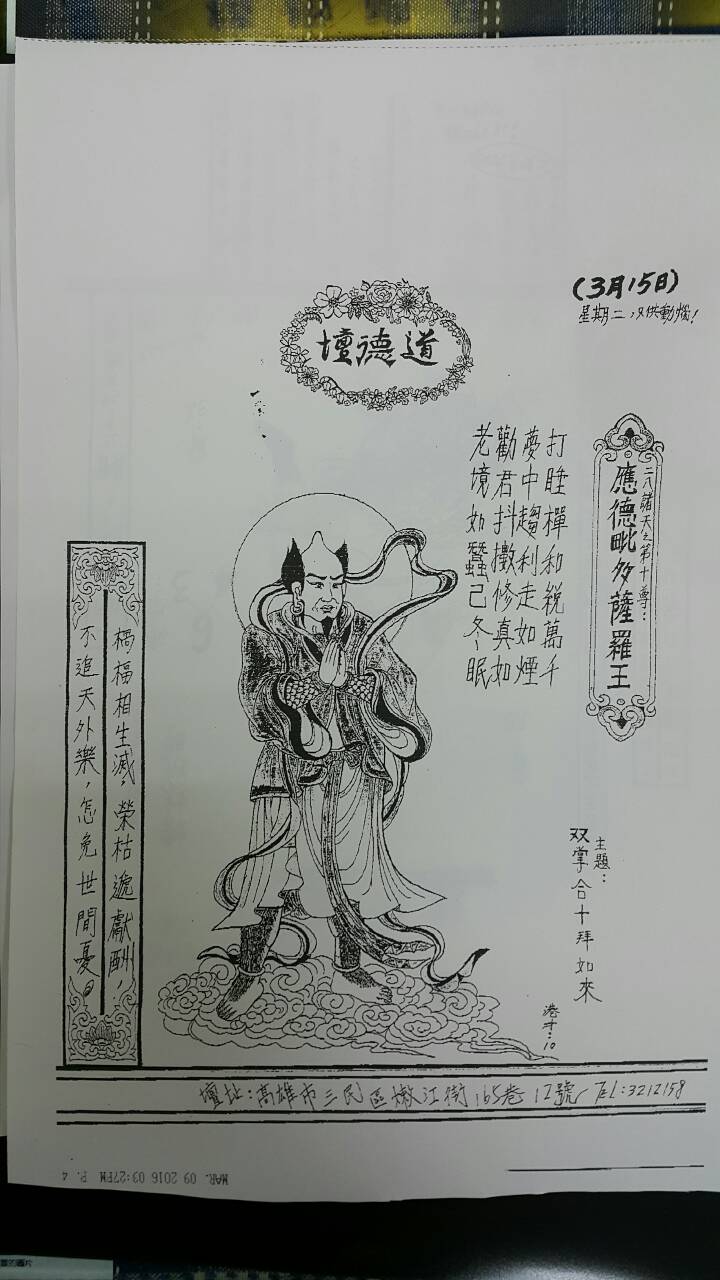 (3月15日)
星期二,只供動燭!
道德壇
二八諸天之第十尊:
應德毗多薩羅王
打睡樿和稅萬千
夢中趨利走如煙
勸君抖擻修真如
老境如蠶已冬眠
禍福相生滅,榮枯遞獻酬,
不追天外樂,怎免世間憂。
主題:
双掌合十拜如來
港才:10
壇址:高雄市三民區嫩江街165巷12號/TEL:3212158
MAR. 09 2016 03:27PM P. 4